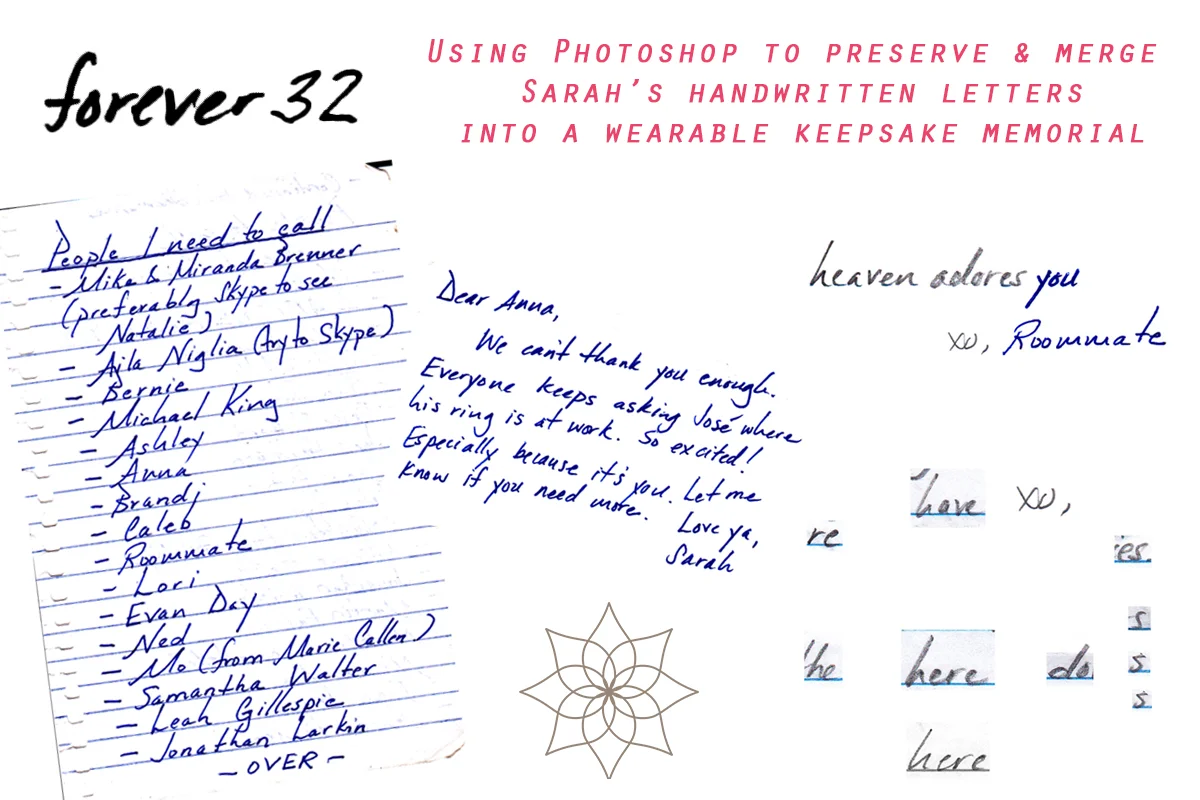 forever 32
USING PHOTOSHOP TO PRESERVE & MERGE
SARAH'S HANDWRITTEN LETTERS
INTO A WEARABLE KEEPSAKE MEMORIAL
People I need to call
- Mike & Miranda Brenner
(preferably Skype to see
Natalie)
- Ajla Niglia (try to Skype)
- Bernie
- Michael King
- Ashley
- Anna
- Brandj
- Caleb
- Roommate
- Lori
- Evan Day
- Ned
- Mo (from Marie Callen)
- Samantha Walter
- Leah Gillespie
- Jonathan Larkin
- OVER -
Dear Anna,
We can't thank you enough.
Everyone keeps asking José where
his ring is at work. So excited!
Especially because it's you. Let me
know if you need more.
Love ya,
Sarah
heaven adores you
xo, Roommate
have xo,
re
es.
s
the here do s
s
here